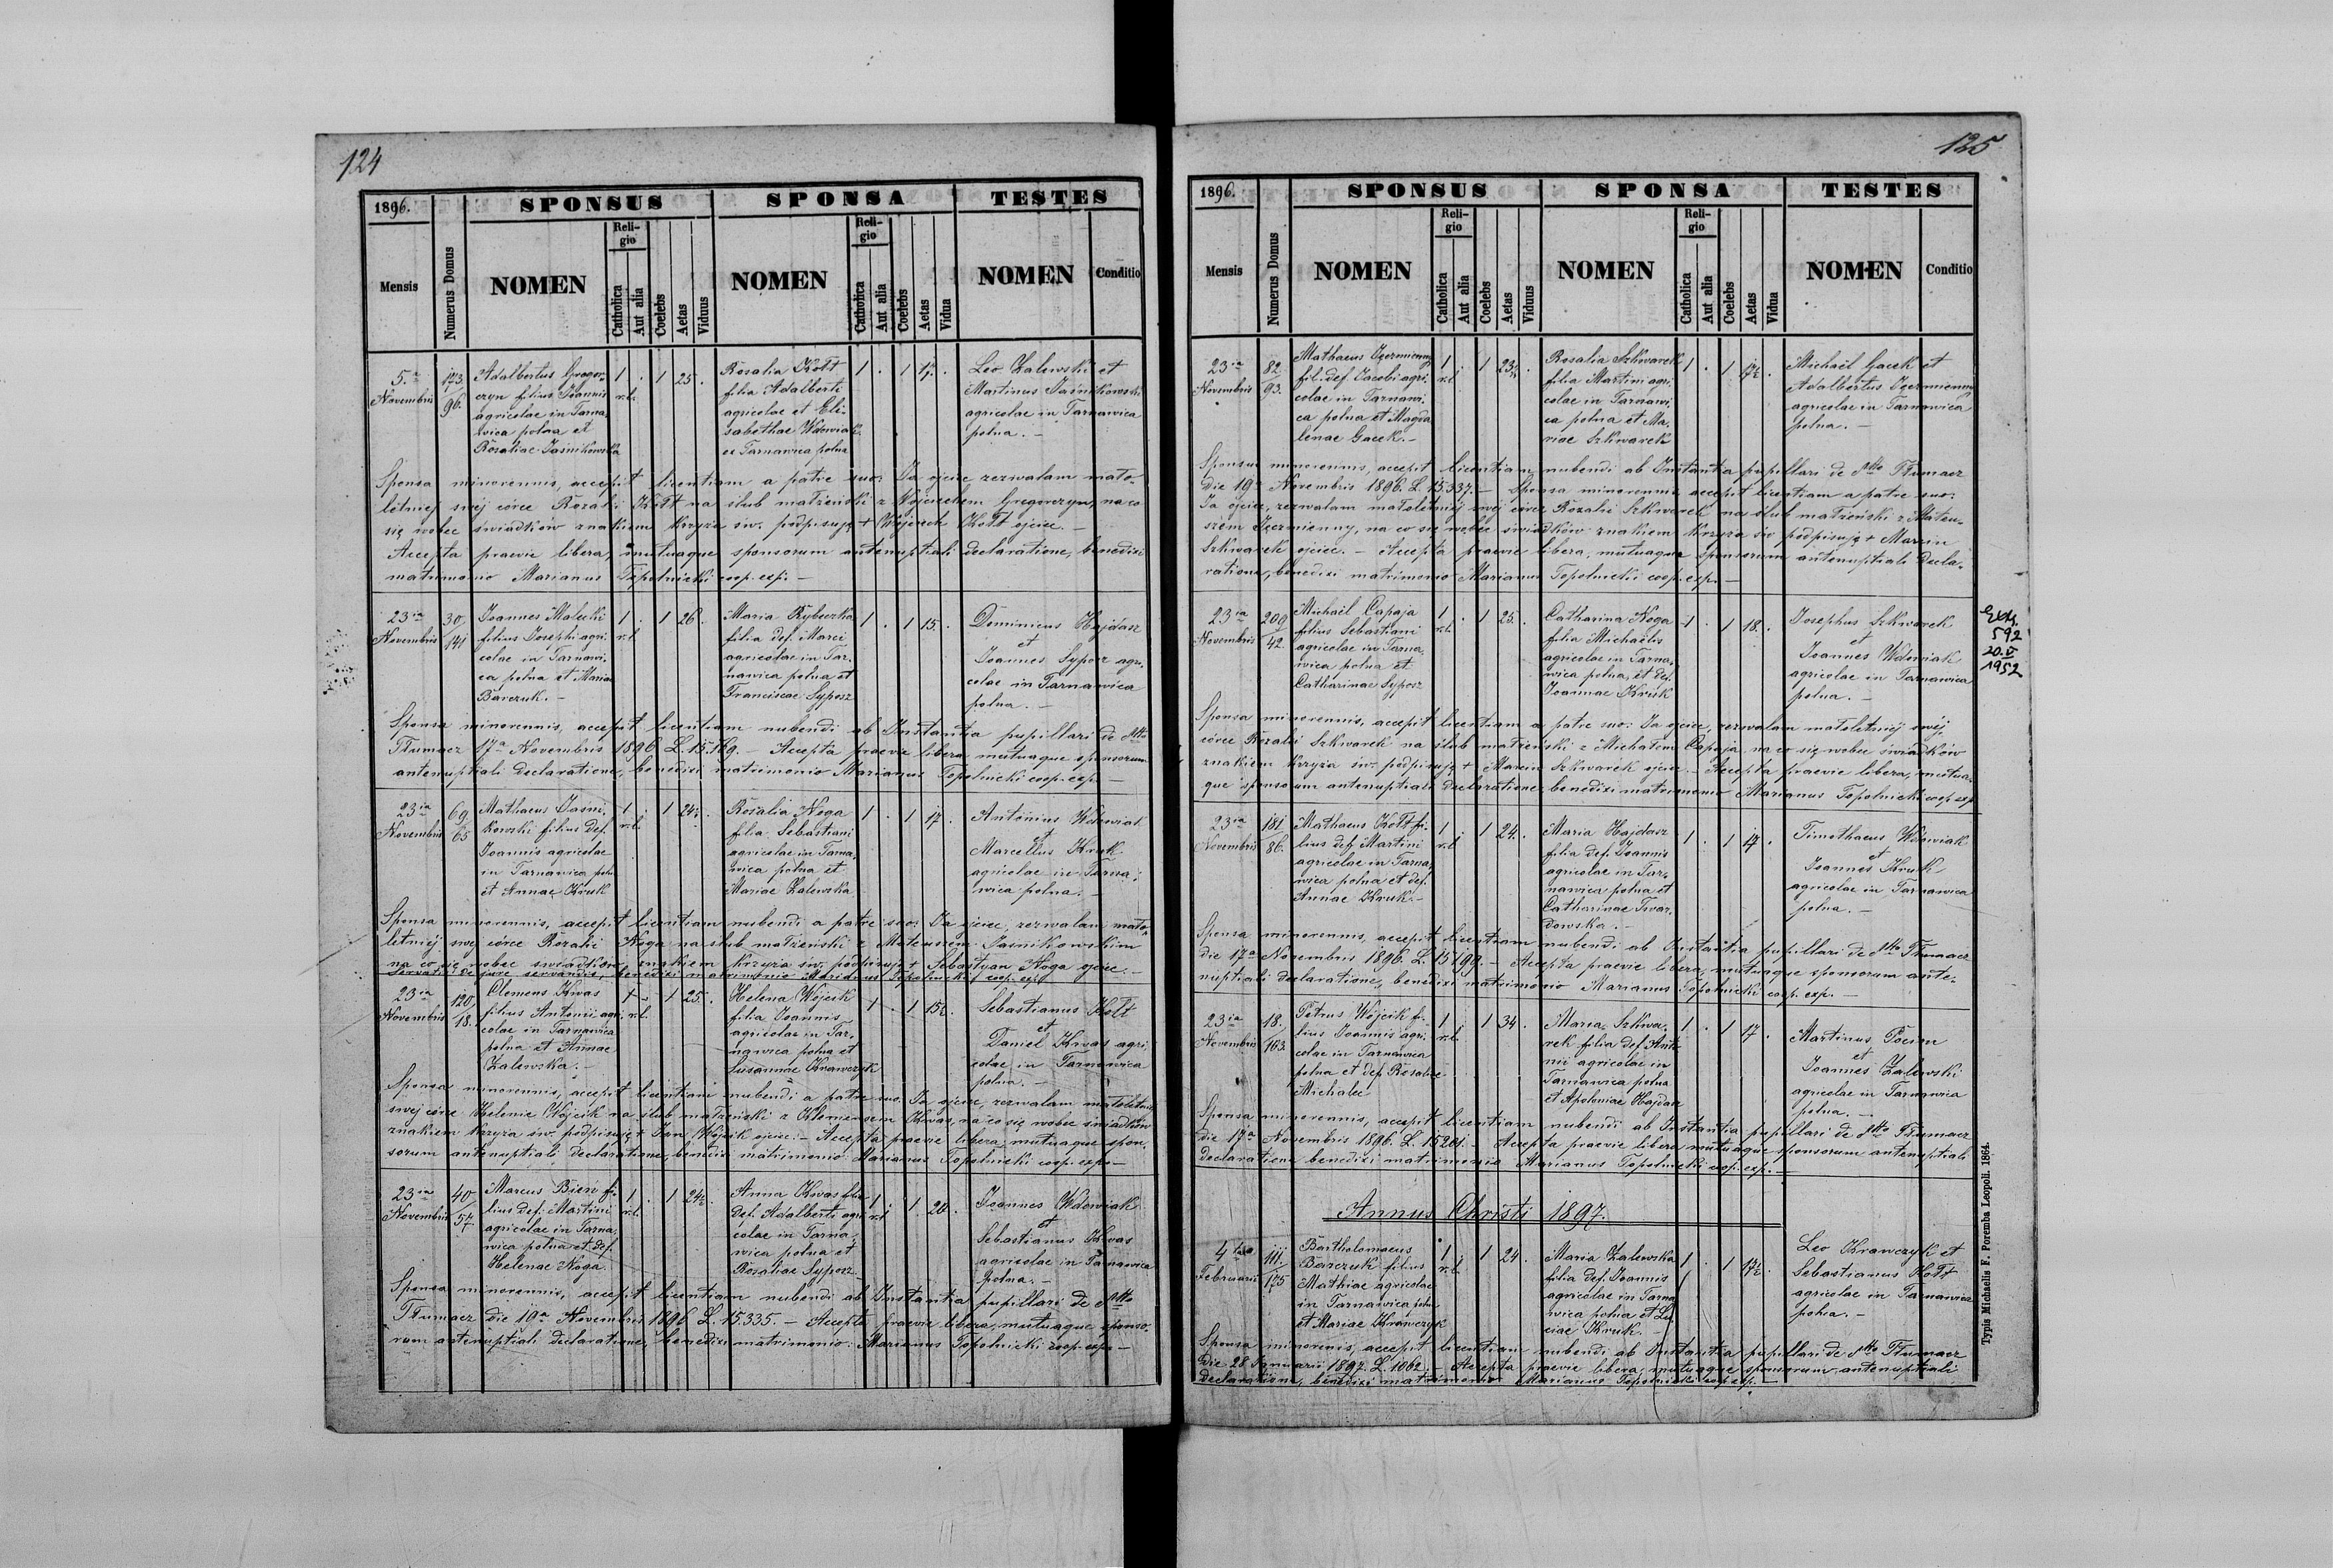 124
1896.
SPONSUS
SPONSA
TESTES
Mensis
Numerus Domus
NOMEN
Religio
Catholica
Aut alia
Coelebs
Aetas
Viduus
NOMEN
Religio
Catholica
Aut alia
Coelebs
Aetas
Vidua
NOMEN
Conditio
5.a Novembris
173. 96.
Adalbertus Gregor-
czyn filius Joannis
agricolae in Tarna-
wica polna et
Rosaliae Jasnikowska
1 . 1 25 .
r.l.
Rosalia Kott
filia Adalberti
agricolae et Eli-
sabethae Wdowiak
ex Tarnawica polna
1 . 1 17 .
Leo Zalewski et
Martinus Jasnikowski
agricolae in Tarnawica
polna. -
Sponsa minorennis, accepit licentiam a patre suo: Ja ojciec zezwalam mało-
letniej swej córce Rozalii Kott na ślub małżeński z Wojciechem Gregorczyn, na co
się wobec świadków znakiem krzyża św. podpisuję + Wojciech Kott ojciec. -
Accepta praevie libera, mutuaque sponsorum antenuptiali declaratione, benedixi
matrimonio Marianus Topolnicki coop. exp. -
23ia Novembris
30 141
Joannes Małecki
filius Josephi agri-
colae in Tarnawi-
ca polna et Mariae
Barczuk. -
1 . 1 26 .
r.l.
Maria Rybeczka
filia def. Marci
agricolae in Tar-
nawica polna et
Franciscae Syposz
1 . 1 15 .
Dominicus Hajdasz
et
Joannes Syposz agri-
colae in Tarnawica
polna. -
Sponsa minorennis, accepit licentiam nubendi ab Instantia pupillari de dtto
Tłumacz 17a Novembris 1896 L. 15.169. - Accepta praevie libera mutuaque sponsorum
antenuptiali declaratione, benedixi matrimonio Marianus Topolnicki coop. exp. -
23ia Novembris
69 65
Mathaeus Jasni-
kowski filius def.
Joannis agricolae
in Tarnawica polna
et Annae Kruk
1 . 1 24½ .
r.l.
Rosalia Noga
filia Sebastiani
agricolae in Tarna-
wica polna et
Mariae Zalewska
1 . 1 17 .
Antonius Wdowiak
et
Marcellus Kruk
agricolae in Tarna-
wica polna. -
Sponsa minorennis, accepit licentiam nubendi a patre suo: Ja ojciec, zezwalam mało-
letniej swej córce Rozalii Noga na ślub małżeński z Mateuszem Jasnikowskim
na co się wobec świadków znakiem krzyża św. podpisuję + Sebastyan Noga ojciec. -
Servatis de jure servandis, benedixi matrimonio Marianus Topolnicki coop. exp.
23ia Novembris
120 18.
Clemens Kwas
filius Antonii agri-
colae in Tarnawica
polna et Annae
Zalewska. -
1 - 1 25 .
r.l.
Helena Wójcik
filia Joannis
agricolae in Tar-
nawica polna et
Susannae Krawczyk
1 . 1 15½ .
Sebastianus Kott
et
Daniel Kwas agri-
colae in Tarnawica
polna. -
Sponsa minorennis, accepit licentiam nubendi a patre suo. Ja ojciec, zezwalam małoletniej
swej córce Helenie Wójcik na ślub małżeński z Klemensem Kwas, na co się wobec świadków
znakiem krzyża św. podpisuję + Jan Wójcik ojciec. - Accepta praevie libera, mutuaque spon-
sorum antenuptiali declaratione, benedixi matrimonio Marianus Topolnicki coop. exp. -
23ia Novembris
40 57
Marcus Bieri fi-
lius def. Martini
agricolae in Tarna-
wica polna et def.
Helenae Noga.
1 . 1 24½ .
r.l.
Anna Kwas filia
def. Adalberti agri-
colae in Tarna-
wica polna et
Rosaliae Syposz
1 . 1 20 .
r.l.
Joannes Wdowiak
et
Sebastianus Kwas
agricolae in Tarnawica
polna. -
Sponsa minorennis, accepit licentiam nubendi ab Instantia pupillari de dtto
Tłumacz die 19a Novembris 1896 L. 15.335. - Accepta praevie libera, mutuaque sponso-
rum antenuptiali declaratione, benedixi matrimonio: Marianus Topolnicki coop. exp. -
125
1896.
SPONSUS
SPONSA
TESTES
Mensis
Numerus Domus
NOMEN
Religio
Catholica
Aut alia
Coelebs
Aetas
Viduus
NOMEN
Religio
Catholica
Aut alia
Coelebs
Aetas
Vidua
NOMEN
Conditio
23ia Novembris
82 93.
Mathaeus Izermienny
fil. def. Jacobi agri-
colae in Tarnawi-
ca polna et Magda-
lenae Gacek. -
1 . 1 23½ .
r.l.
Rosalia Szkwarek
filia Martini agri-
colae in Tarnawi-
ca polna et Ma-
riae Szkwarek
1 . 1 17½ .
Michaël Gacek et
Adalbertus Izermienny
agricolae in Tarnawica
polna. -
Sponsus minorennis, accepit licentiam nubendi ab Instantia pupillari de dtto Tłumacz
die 19a Novembris 1896. L. 15.337. - Sponsa minorennis accepit licentiam a patre suo:
Ja ojciec, zezwalam małoletniej swej córce Rozalii Szkwarek na ślub małżeński z Mateu-
szem Izermienny, na co się wobec świadków znakiem krzyża św. podpisuję + Marcin
Szkwarek ojciec. - Accepta praevie libera, mutuaque sponsorum antenuptiali decla-
ratione, benedixi matrimonio Marianus Topolnicki coop. exp. -
23ia Novembris
209 42.
Michaël Capaja
filius Sebastiani
agricolae in Tarna-
wica polna et
Catharinae Syposz
1 . 1 25 .
r.l.
Catharina Noga
filia Michaëlis
agricolae in Tarna-
wica polna, et def.
Joannae Kruk
1 . 1 18 .
Josephus Szkwarek
et
Joannes Wdowiak
agricolae in Tarnawica
polna. -
592
20.V
1952
Sponsa minorennis, accepit licentiam a patre suo: Ja ojciec, zezwalam małoletniej swej
córce Rozalii Szkwarek na ślub małżeński z Michałem Capaja, na co się wobec świadków
znakiem krzyża św. podpisuję + Marcin Szkwarek ojciec. - Accepta praevie libera, mutua-
que sponsorum antenuptiali declaratione, benedixi matrimonio Marianus Topolnicki coop. exp.
23ia Novembris
181 86.
Mathaeus Kott fi-
lius def. Martini
agricolae in Tarna-
wica polna et def.
Annae Kruk. -
1 . 1 24 .
r.l.
Maria Hajdasz
filia def. Joannis
agricolae in Tar-
nawica polna et
Catharinae Twar-
dowska. -
1 . 1 17 .
Timothaeus Wdowiak
et
Joannes Kruk
agricolae in Tarnawica
polna. -
Sponsa minorennis, accepit licentiam nubendi ab Instantia pupillari de dtto Tłumacz
die 17a Novembris 1896. L. 15199. - Accepta praevie libera, mutuaque sponsorum ante-
nuptiali declaratione, benedixi matrimonio Marianus Topolnicki coop. exp. -
23ia Novembris
18. 163.
Petrus Wójcik fi-
lius Joannis agri-
colae in Tarnawica
polna et def. Rosaliae
Michalec
1 . 1 34 .
r.l.
Maria Szkwa-
rek filia def. Anto-
nii agricolae in
Tarnawica polna
et Apoloniae Hajdasz
1 . 1 17 .
Martinus
et
Joannes Zalewski
agricolae in Tarnawica
polna. -
Sponsa minorennis, accepit licentiam nubendi ab Instantia pupillari de dtto Tłumacz
die 17a Novembris 1896. L. 15201. - Accepta praevie libera mutuaque sponsorum antenuptiali
declaratione, benedixi matrimonio Marianus Topolnicki coop. exp. -
Annus Christi 1897.
4ta Februarii
111. 175
Bartholomaeus
Barczuk filius
Mathiae agricolae
in Tarnawica polna
et Mariae Krawczyk
1 . 1 24 .
r.l.
Maria Zalewska
filia def. Joannis
agricolae in Tarna-
wica polna et Lu-
ciae Kruk. -
1 . 1 17½ .
Leo Krawczyk et
Sebastianus Kott
agricolae in Tarnawica
polna. -
Sponsa minorennis, accepit licentiam nubendi ab Instantia pupillari de dtto Tłumacz
die 28 Januarii 1897. L. 1062. - Accepta praevie libera, mutuaque sponsorum antenuptiali
declaratione, benedixi matrimonio Marianus Topolnicki coop. exp. -
Typis Michaelis F. Poremba Leopoli. 1864.